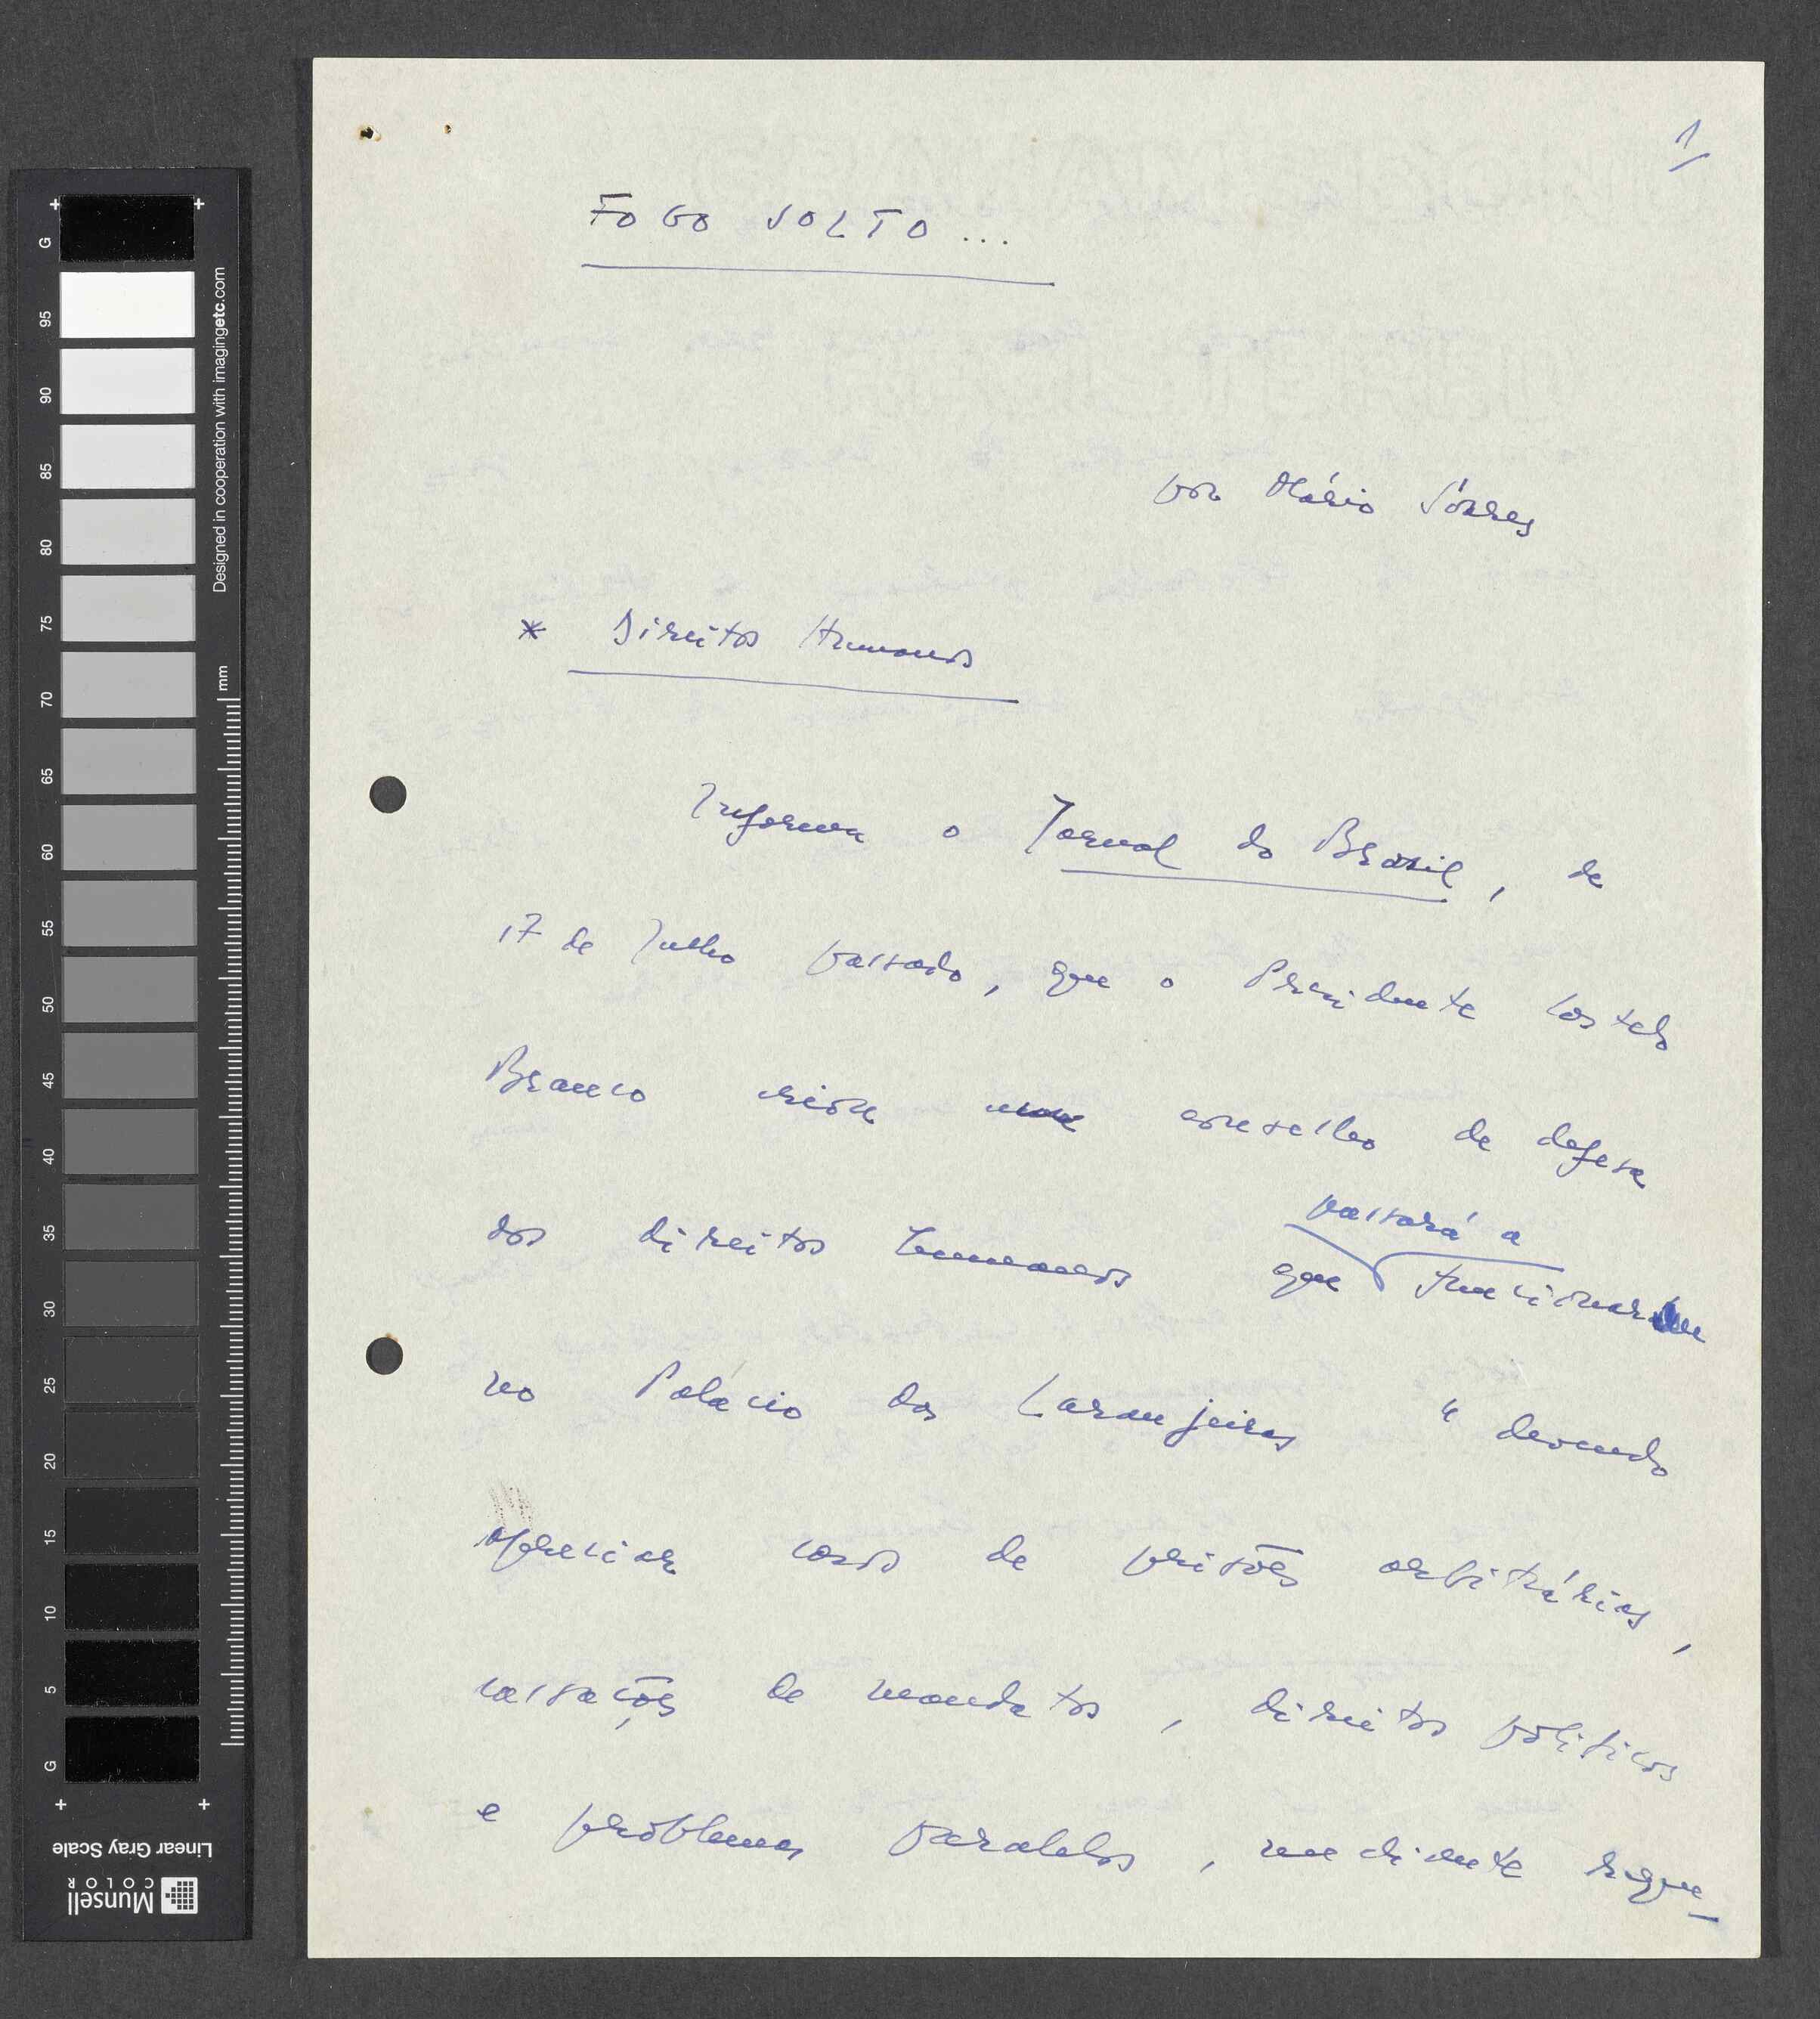 1/
FOGO SOLTO ...
por Mário Soares
* Direitos Humanos
Informa o Jornal do Brasil, de
17 de Julho passado, que o Presidente Castelo
Branco criou um conselho de defesa
passará a
dos direitos humanos que funcionar
no Palácio das Laranjeiras "devendo
apreciar casos de prisões arbitrárias,
cassações de mandatos, direitos políticos
e problemas paralelos, mediante reque-
G
95
90
85
80
75
70
65
60
55
50
45
40
35
30
25
20
15
10
5
G
mm
Designed in cooperation with imagingetc.com
Linear Gray Scale
Munsell
COLOR